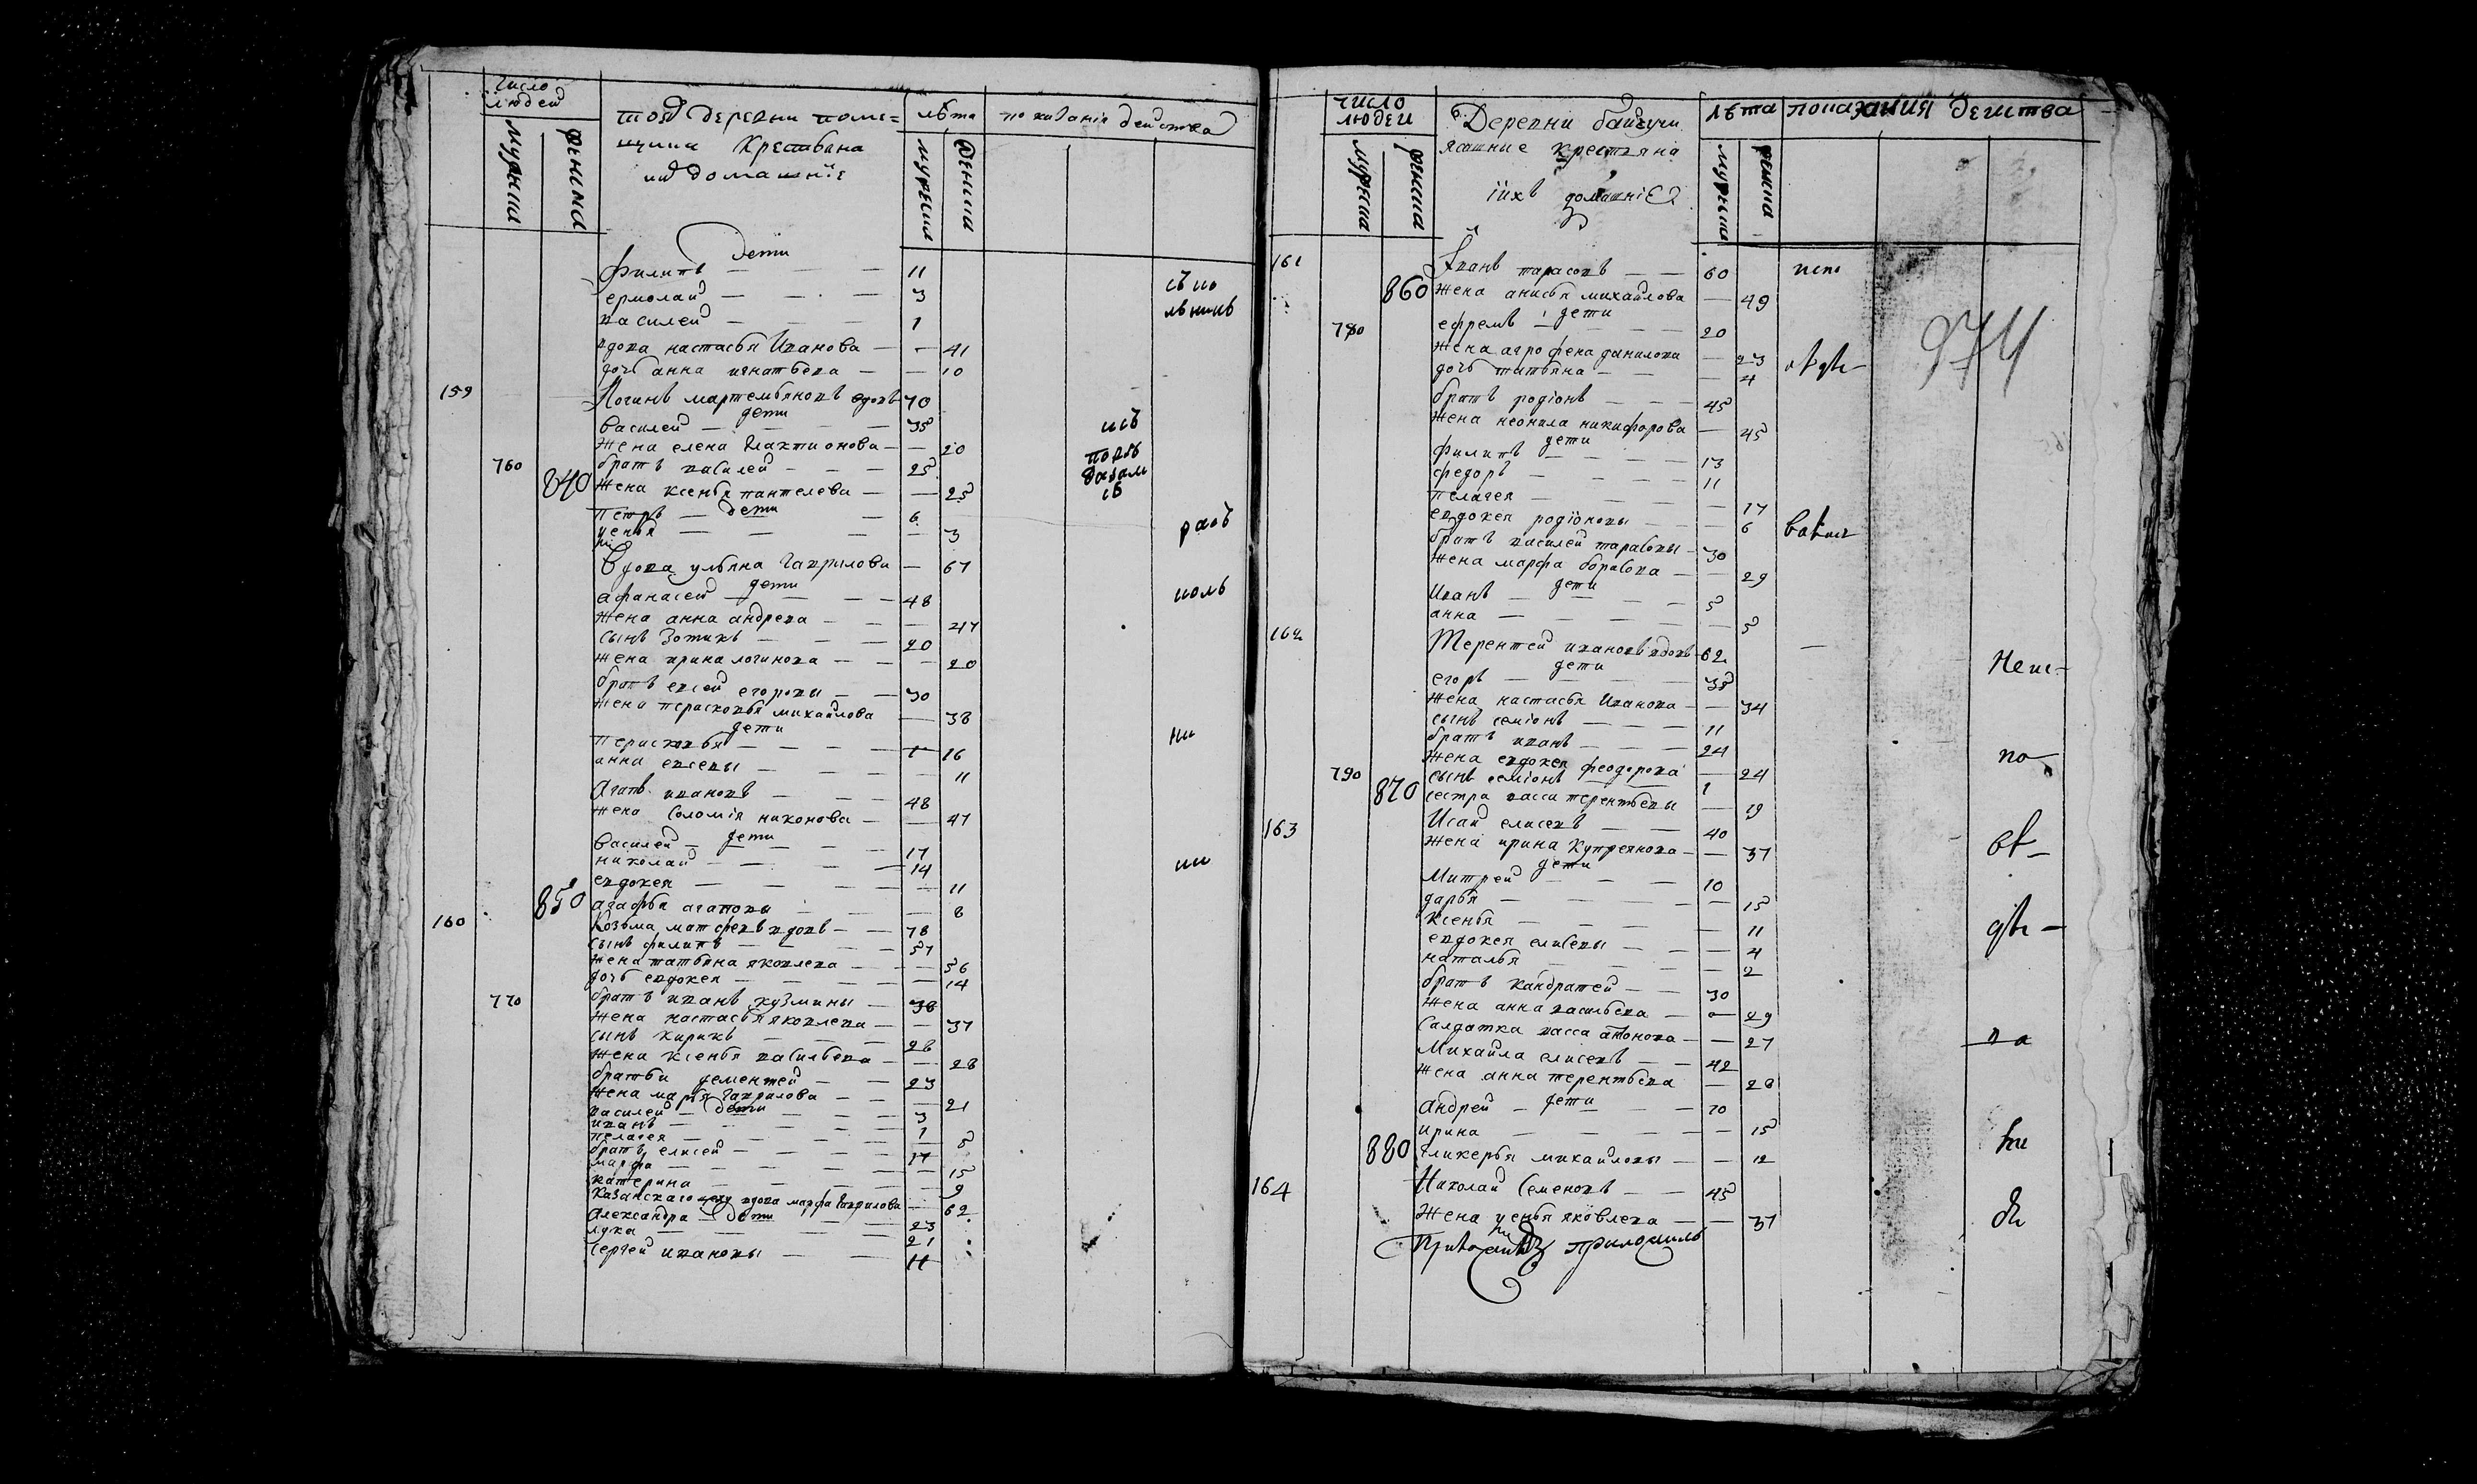 число людей
мужеска
женска
той деревни поме=
щика крестьяна
и домашнїе
лѣта
мужеска
женска
показанїе действа
дети
филипъ — — — 11
ермолай — — — 3
василей — — — 1
вдова настасья Иванова — — 41
дочь анна игнатьева — — 10
159
Логинъ мартемьяновъ вдовъ 70
дети
василей — — — 35
жена елена Галактионова — — 20
760
братъ василей — — — 25
840
жена ксенья пантелева — — 25
дети
петръ — — 6
ксенья — — — 3
Вдова ульяна Гаврилова — 67
дети
афанасей — — 48
жена анна андреева — — 47
сынъ Зотикъ — — — 20
жена ирина логинова — — 20
братъ евсей егоровы — — 30
жена парасковья михайлова — 38
дети
парасковья — — — 16
анна евсевы — — — 11
Агапъ ивановъ — — — 48
жена Соломія никонова — — 47
дети
василей — — — 17
николай — — — 14
евдокея — — — 11
850
агафья агаповы — — 8
160
Козьма матфеевъ вдовъ — — 78
сынъ филипъ — — — 57
жена татьяна яковлева — — 56
дочь евдокея — — — 14
770
братъ иванъ кузмины — 38
жена настасья яковлева — — 37
сынъ кирикъ — — — 28
жена ксенья васильева — — 28
братьи дементей — — 23
жена марья Гаврилова — — 21
дети
василей — — — 3
иванъ — — — 1
пелагея — — — 5
братъ елисей — — — 17
марфа — — — 15
катерина — — — 9
Казанскаго цеху вдова марфа Гаврилова — 62
дети
Александра — — 23
лука — — — 21
сергей ивановы — — 11
число людей
мужеска
женска
Деревни
ясашные крестьяна
ііхъ домашніе
лѣта
мужеска
женска
показания действа
974
161
Иванъ тарасовъ — — 60
860
жена анисья михайлова — 49
дети
780
ефремъ — — — 20
жена агрофена данилова — 23
дочь татьяна — — — 4
братъ родіонъ — — — 45
жена неонила никифорова — 45
дети
филипъ — — — 13
федоръ — — — 11
пелагея — — — 17
евдокея родіоновы — — 6
братъ василей тарасовы — 30
жена марфа борисова — — 29
дети
Иванъ — — — 5
анна — — — 5
162
Терентей ивановъ вдовъ 62
дети
егоръ — — — 35
жена настасья Иванова — — 34
сынъ семіонъ — — — 11
братъ иванъ — — — 24
жена евдокея феодорова — 24
790
сынъ семіонъ — — 1
870
сестра васса терентьевы — 19
163
Исай елисевъ — — 40
жена ирина Купреянова — — 37
дети
Митрей — — — 10
дарья — — — 15
ксенья — — — 11
евдокея елисевы — — 4
наталья — — — 2
братъ кандратей — — 30
жена анна васильева — — 29
Салдатка васса антонова — — 27
Михайла елисевъ — — 42
жена анна терентьева — 28
дети
Андрей — — — 10
ирина — — — 15
880
гликерья михайловы — — 12
164
Николай Семеновъ — — 45
жена ксенья яковлева — — 37
приложилъ